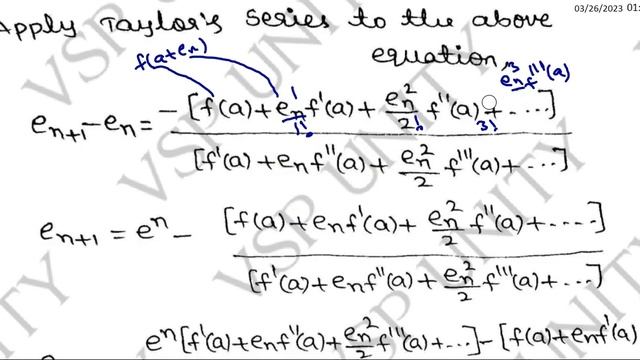 03/26/2023 01:
Apply Taylor's series to the above
equation,
f(a+en)
e_n^3 f'''(a)
e_{n+1} - e_n = -[f(a) + e_n^1/1! f'(a) + e_n^2/2! f''(a) + ....] / [f'(a) + e_n f''(a) + e_n^2/2 f'''(a) + ...]
3!
e_{n+1} = e^n - [f(a) + e_n f'(a) + e_n^2/2 f''(a) + ....] / [f'(a) + e_n f''(a) + e_n^2/2 f'''(a) + ...]
e^n [f'(a) + e_n f''(a) + e_n^2/2 f'''(a) + ...] - [f(a) + e_n f'(a)
VSP UNITY